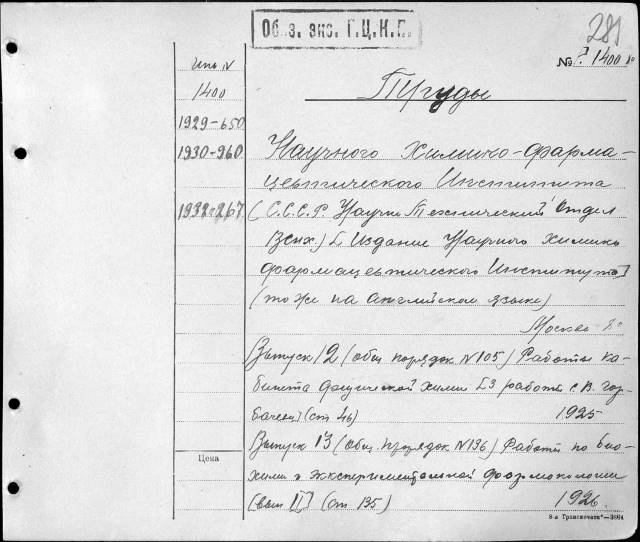 Об. з. экс. Г.Ц.К.П.
281
№ Р. 1400
Инв N
1400
1929-650
1930-960
1932-267
Труды
Научного Химико-Фарма-
цевтического Института
(С.С.С.Р. Научн Технический Отдел
ВСНХ.) [ Издание Научного Химико
фармацевтического Института]
(то же на английском языке)
Москва
Выпуск 12 (Общ порядок N105) Работы ка-
бинета физической химии [3 работы С.В. Гор-
бачев] (ст 46) 1925
Выпуск 13 (Общ. порядок N136) Работы по био
химии и экспериментальной фармокологии
(вып II) (ст 135) 1926
Цена
8-я Транспечати*—3864